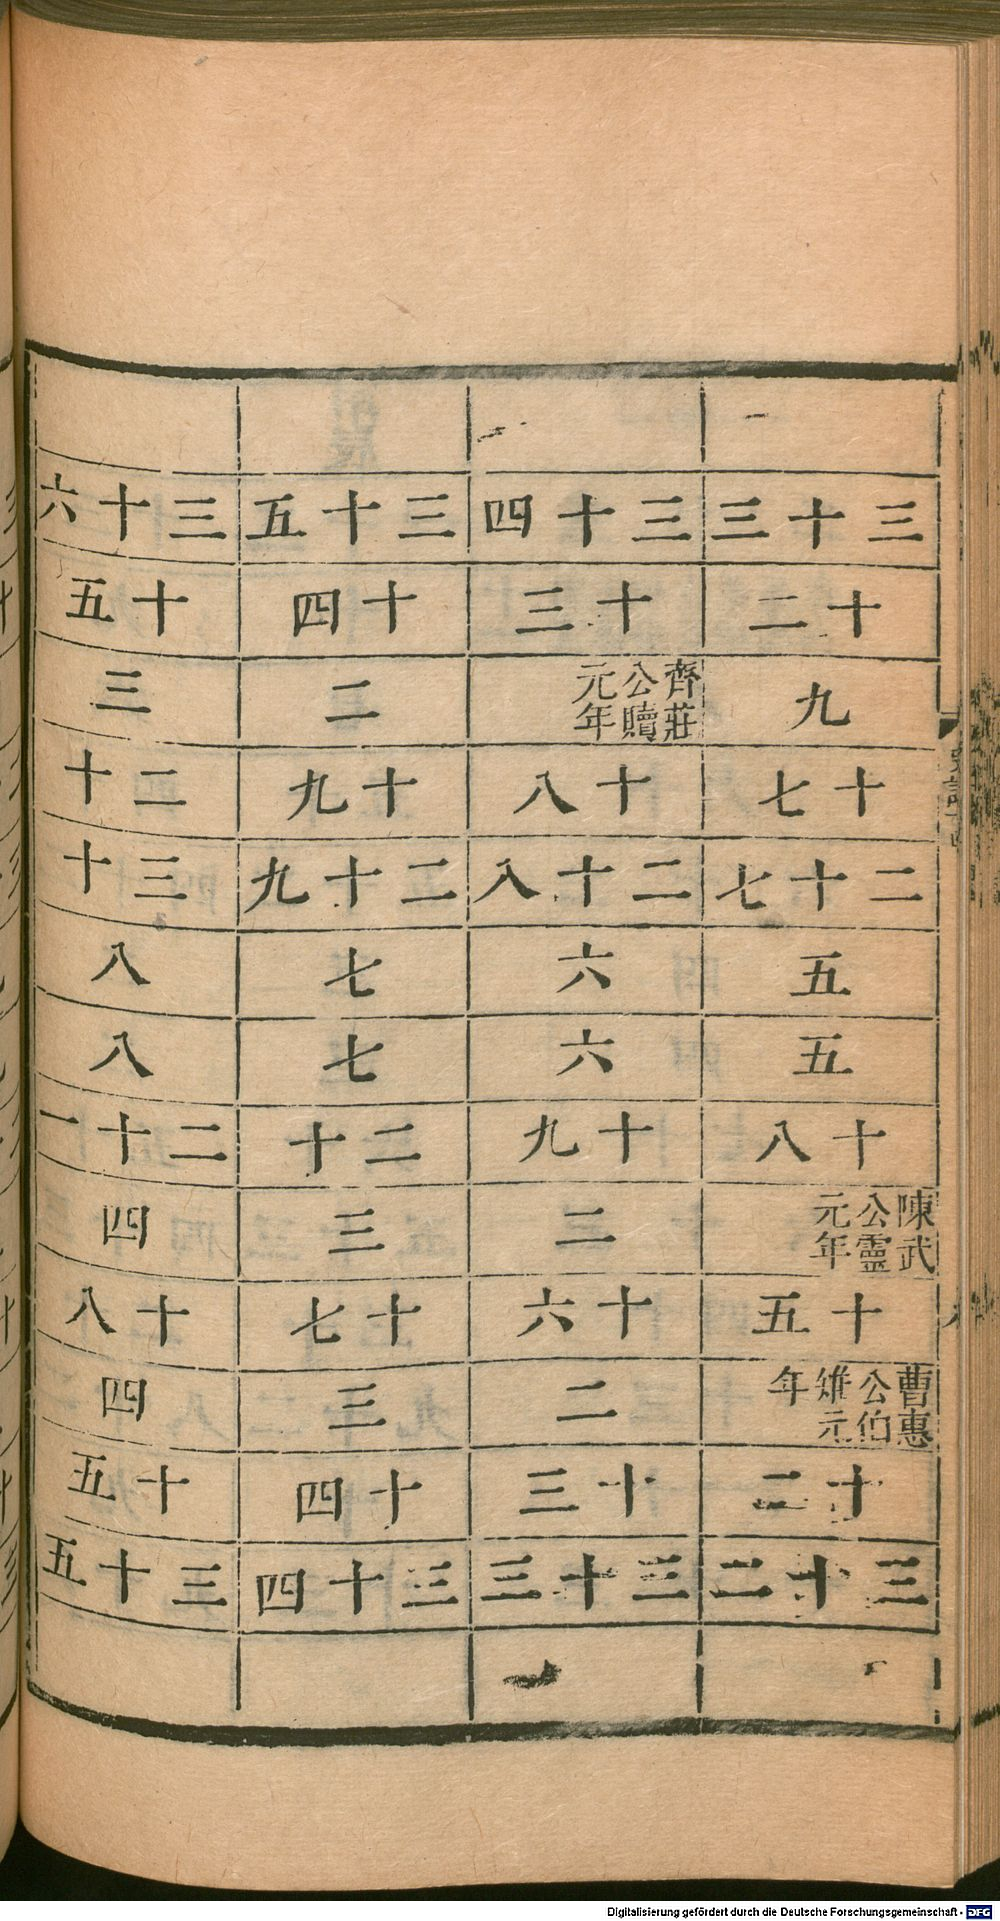 三十三
十二
九
十七
二十七
五
五
十八
陳武公靈元年
十五
曹惠公伯雉元年
十二
三十二
三十四
十三
齊莊公贖元年
十八
二十八
六
六
十九
二
十六
二
十三
三十三
三十五
十四
二
十九
二十九
七
七
二十
三
十七
三
十四
三十四
三十六
十五
三
二十
三十
八
八
二十一
四
十八
四
十五
三十五
Digitalisierung gefördert durch die Deutsche Forschungsgemeinschaft - DFG